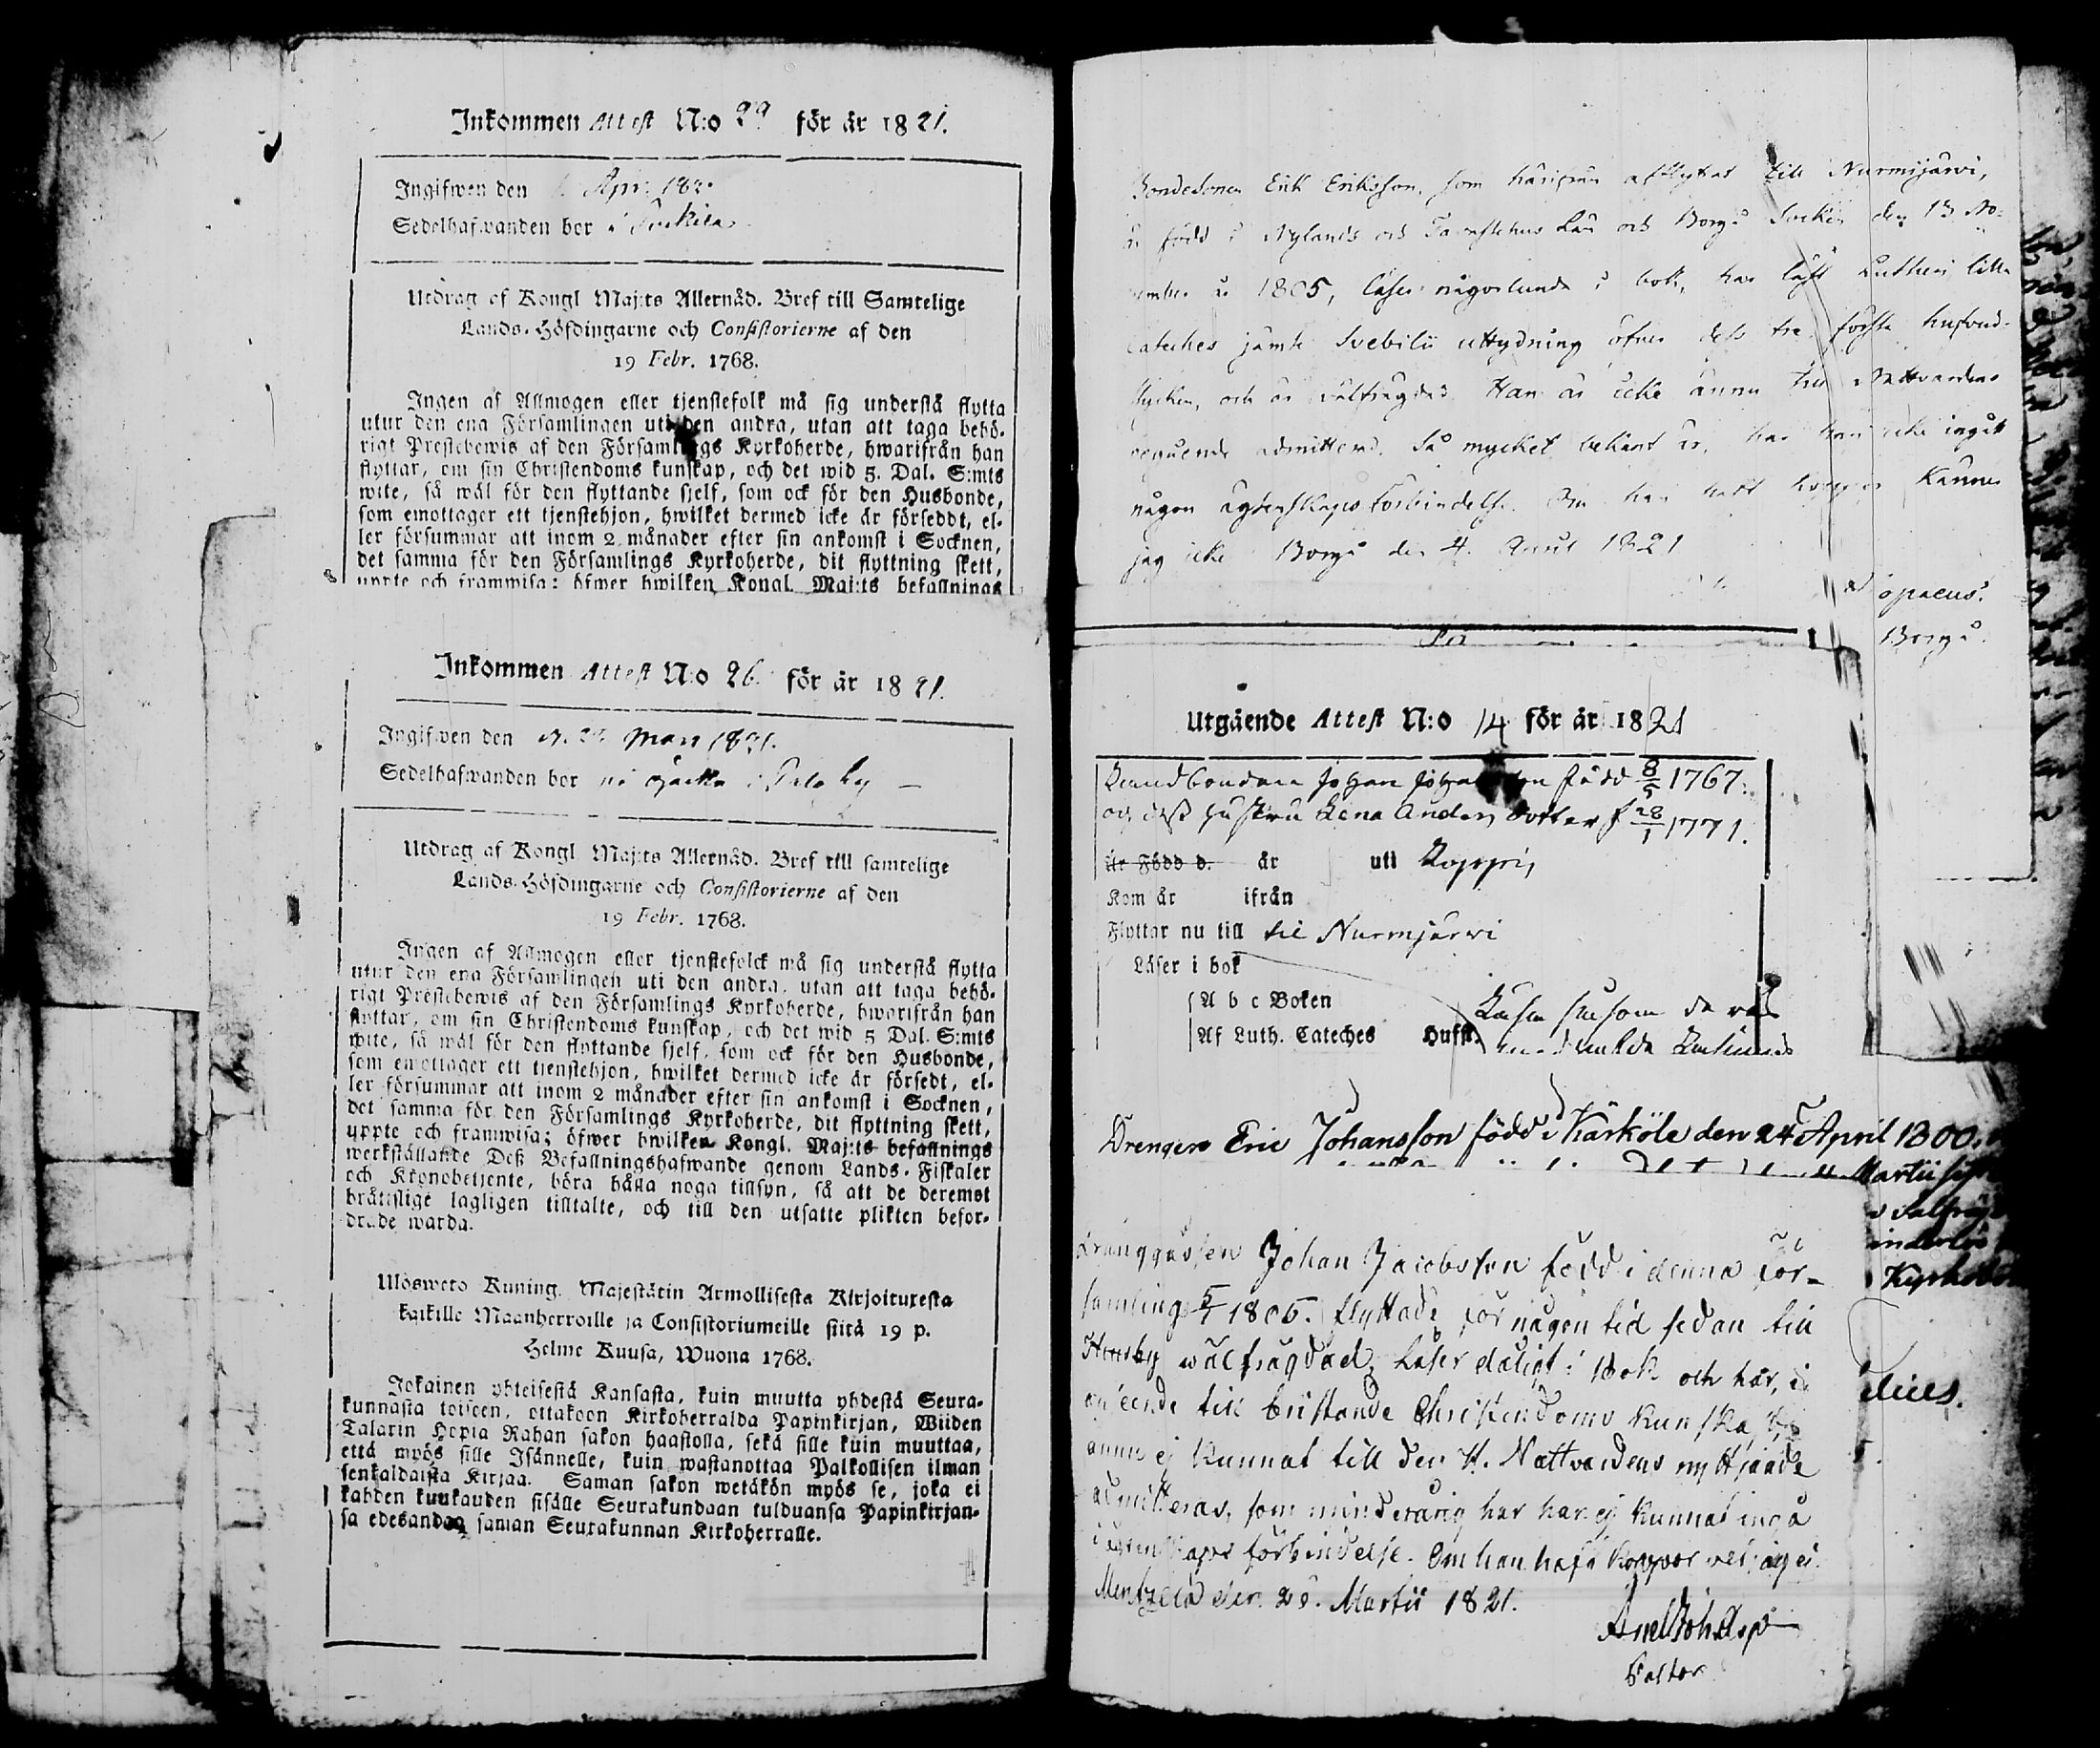 Inkommen Attest N:o 29 för år 1821.
Ingifwen den Apr. 182
Sedelhafwanden bor i
Utdrag af Kongl Maj:ts Allernåd. Bref till Samtelige
Lands-Höfdingarne och Consistorierne af den
19 Febr. 1768.
Ingen af Allmogen eller tjenstefolk må sig understå flytta
utur den ena Församlingen uti den andra, utan att taga behö-
rigt Prestebewis af den Församlings Kyrkoherde, hwarifrån han
flyttar, om sin Christendoms kunskap, och det wid 5. Dal. S:mts
wite, så wäl för den flyttande sjelf, som ock för den Husbonde,
som emottager ett tjenstehjon, hwilket dermed icke är förseddt, el-
ler försummar att inom 2 månader efter sin ankomst i Socknen,
det samma för den Församlings Kyrkoherde, dit flyttning skett,
uppte och framwisa: öfwer hwilken Kongl. Maj:ts befallnings
Inkommen Attest N:o 26 för år 1821.
Ingifwen den Mars 1821.
Sedelhafwanden bor på Ojacka i
Utdrag af Kongl Maj:ts Allernåd. Bref till samtelige
Lands-Höfdingarne och Consistorierne af den
19 Febr. 1768.
Ingen af Allmogen eller tjenstefolck må sig understå flytta
utur den ena Församlingen uti den andra, utan att taga behö-
rigt Prestebewis af den Församlings Kyrkoherde, hwarifrån han
flyttar, om sin Christendoms kunskap, och det wid 5 Dal. S:mts
wite, så wäl för den flyttande sjelf, som ock för den Husbonde,
som emottager ett tjenstehjon, hwilket dermed icke är försedt, el-
ler försummar att inom 2 månader efter sin ankomst i Socknen,
det samma för den Församlings Kyrkoherde, dit flyttning skett,
uppte och framwisa; öfwer hwilken Kongl. Maj:ts befallnings
werkställande Deß Befallningshafwande genom Lands-Fiskaler
och Kronobetjente, böra hålla noga tillsyn, så att de deremot
bråttslige lagligen tilltalte, och till den utsatte plikten befor-
drade warda.
Ulosweto Kuning. Majestätin Armollisesta Kirjoituxesta
kaikille Maanherroille ja Consistoriumeille siitä 19 p.
Helme Kuusa, Wuona 1768.
Jokainen yhteisestä Kansasta, kuin muutta yhdestä Seura-
kunnasta toiseen, ottakoon Kirkoherralda Papinkirjan, Wiiden
Talarin Hopia Rahan sakon haastolla, sekä sille kuin muuttaa,
että myös sille Isännelle, kuin wastanottaa Palkollisen ilman
senkaldaista Kirjaa. Saman sakon wetäkön myös se, joka ei
kahden kuukauden sisälle Seurakundaan tulduansa Papinkirjan-
sa edesanna saman Seurakunnan Kirkoherralle.
Bondesonen Erik Eriksson, som härifrån afflyttat till Nurmijärvi,
är född i Nylands och Tavastehus Län och Borgå Socken den 13 No-
vember år 1805, läser någorlunda i bok, har läst Lutheri lilla
Cateches jämte Svebilii uttydning öfver dess tre första hufvud-
stycken, och är välfrägdad. Han är icke ännu till Nattvardens
begående admitterad. Så mycket bekant är, har han icke ingått
någon ägtenskaps förbindelse. Om han haft koppor känner
jag icke. Borgå den 4. April 1821
Borgå.
Utgående Attest N:o 14 för år 1821
Landbonden Johan född 8/5 1767.
och dess hustru Lena Anders dotter f 28/1 1771.
Är Född d. år uti
Kom år ifrån
Flyttar nu till til Nurmjärwi
Läser i bok
A b c Boken
Af Luth. Cateches Hufst.
Drengen Eric Johansson född i Kärköle den 24 April 1800.
Martii
Dränggossen Johan Jacobsson född i denna För-
samling 5/1 1805. flyttade för någon tid sedan till
wälfrägdad, Läser dåligt i Bok och har, i
anseende till bristande Christendoms kunskap,
ännu ej kunnat till den H. Nattvardens nyttjande
admitteras, som minderårig har han ej kunnat ingå
i ägtenskaps förbindelse. Om han haft koppor vet jag ej.
Mentzelä den 28. Martii 1821.
Pastor